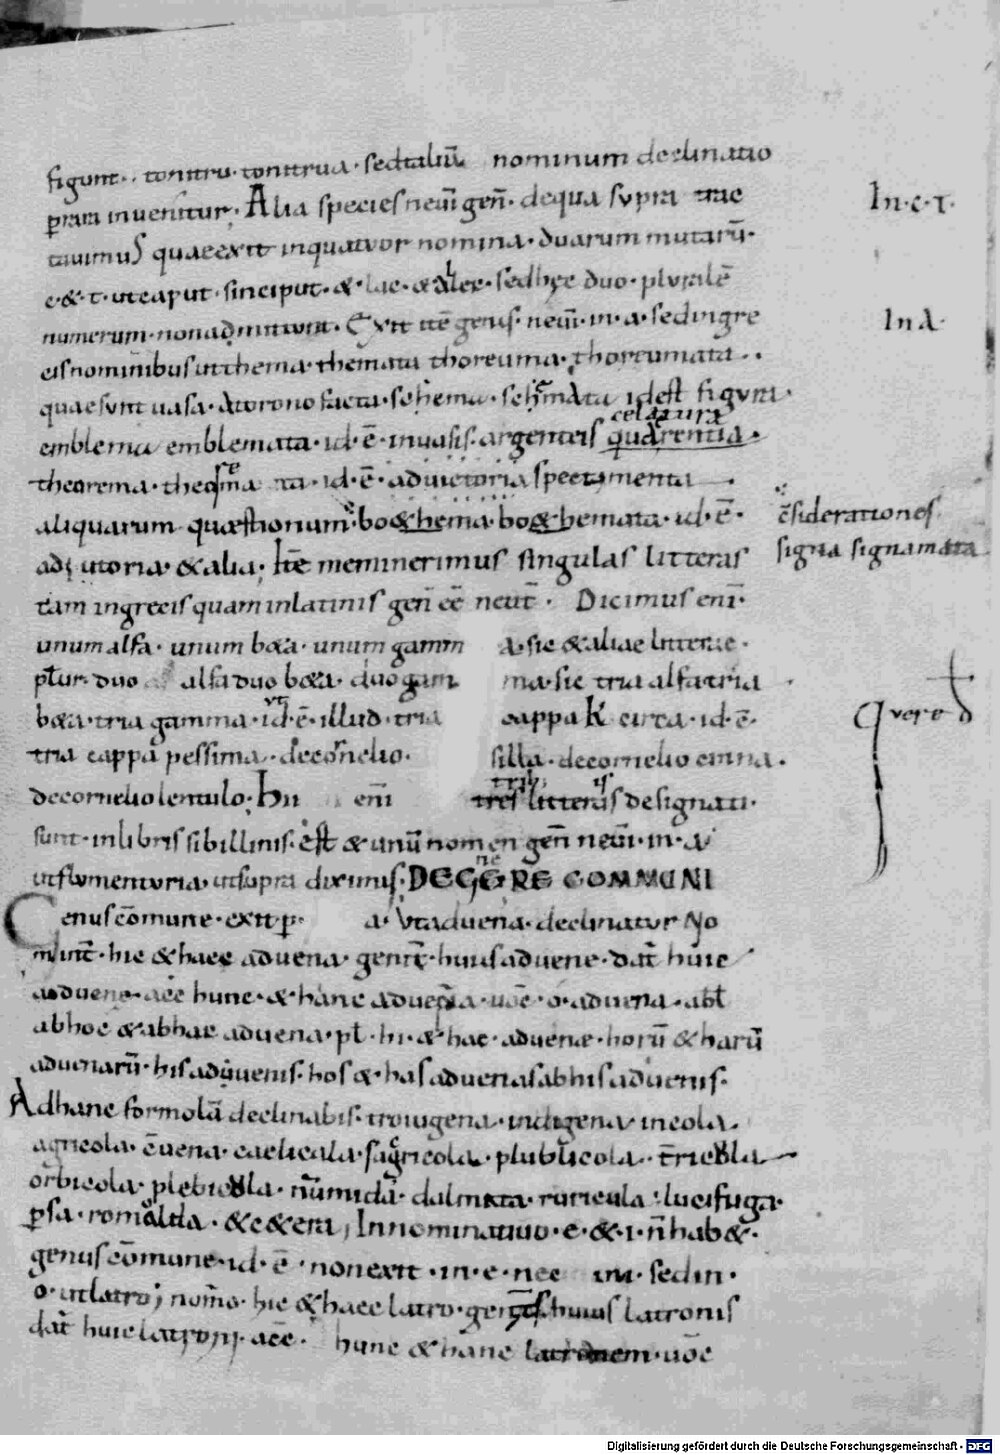 figunt · tonitru · tonitrua · sed taliū nominum declinatio
p̱rara inuenitur · Alia species neut̄i geñ · de qua supra trac
tauimus quae exit in quatuor nomina · duarum mutarū ·
c · & · t · ut caput · sinciput · & · lac · & allec · sed hęc duo · pluralē
numerum · non admittunt · Exit itē genus · neut̄i · in · a · sed in gre
cis nominibus ut thema · themata thoreuma · thoreumata · ·
quae sunt uasa · a torono facta · schema · schemata id est figura ·
celatura
emblema emblemata · id · ē · in uasis · argenteis quarentia ·
theorema · theorema ta · id · ē · ad uictoria spectamenta
aliquarum quæstionum · bo&hema · bo&hemata · id · ē ·
adiutoria · & alia · Itē meminerimus singulas litteras
tam in grecis quam in latinis geñ eē neut̄ · Dicimus eni ·
unum alfa · unum b&a · unum gamm a · sic & aliae litterae ·
pl̄ur · duo alfa duo b&a · duo gam ma · sic tria alfa tria
b&a · tria gamma · ut id · ē · illud · tria cappa K circa · id · ē ·
tria cappa pessima · de cornelio · silla · de cornelio cinna ·
de cornelio lentulo · Hii enī tres litteris designati ·
sunt · in libris sibillinis · est & unū nomen geñ neut̄i · in · a
ut flumentoria · ut supra diximus · DE GENERE COMMUNI
Genus cōmune · exit p̱ · a · Ut aduena · declinatur No
minat̄ · hic & haec aduena · genit̄ · huius aduene · dat̄ huic
aduene · acc̄ hunc · & hanc aduena · uoc̄ · o · aduena · abl̄
ab hoc & ab hac aduena · pl̄ · hi · & hae · aduenæ · horū & harū
aduenarū · his aduenis · hos & has aduenas ab his aduenis ·
Ad hanc formolā declinabis · troiugena · indigena incola ·
agricola · c̄uena · caelicola · sagricola · publicola · tricola
orbicola · plebicola · numida · dalmata · ruricula · lucifuga ·
p̱sa · romulida · & c&era / In nominatiuo · e · & · i · n̄ hab& ·
genus cōmune · id · ē · non exit · in · e · nec in i · sed in ·
o · ut latro ; nom̄o · hic & haec latro · genit̄ huius latronis
dat̄ huic latroni · acc̄ · hunc & hanc latronem · uoc̄
In · c · t ·
In A ·
c̄siderationes
signa signamata
quere
Digitalisierung gefördert durch die Deutsche Forschungsgemeinschaft - DFG